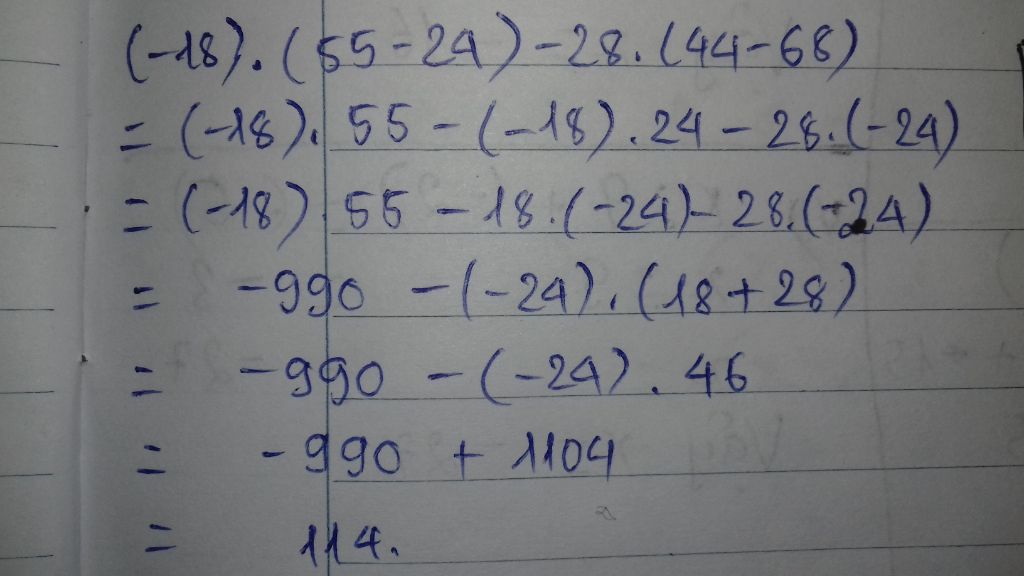 (-18).(55-24)-28.(44-68)
= (-18). 55 - (-18).24 - 28.(-24)
= (-18) 55 - 18.(-24) - 28.(-24)
= -990 - (-24).(18+28)
= -990 - (-24). 46
= -990 + 1104
= 114.